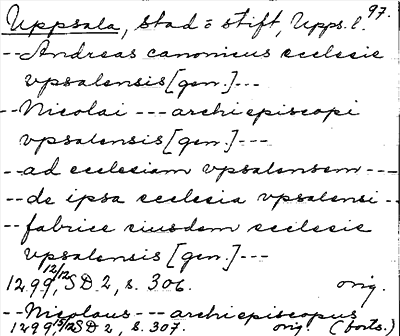 97.
Uppsala, stad o stift, Upps. l.
-- Andreas canonicus ecclesie
vpsalensis [gen.] ---
-- Nicolai --- archiepiscopi
vpsalensis [gen.] ---
-- ad ecclesiam vpsalensem ---
-- de ipsa ecclesia vpsalensi --
-- fabrice eiusdem ecclesie
vpsalensis [gen.] ---
1299 12/12 SD 2, s. 306. orig.
-- Nicolaus --- archiepiscopus
1299 SD 2, s. 307. orig. (forts.)